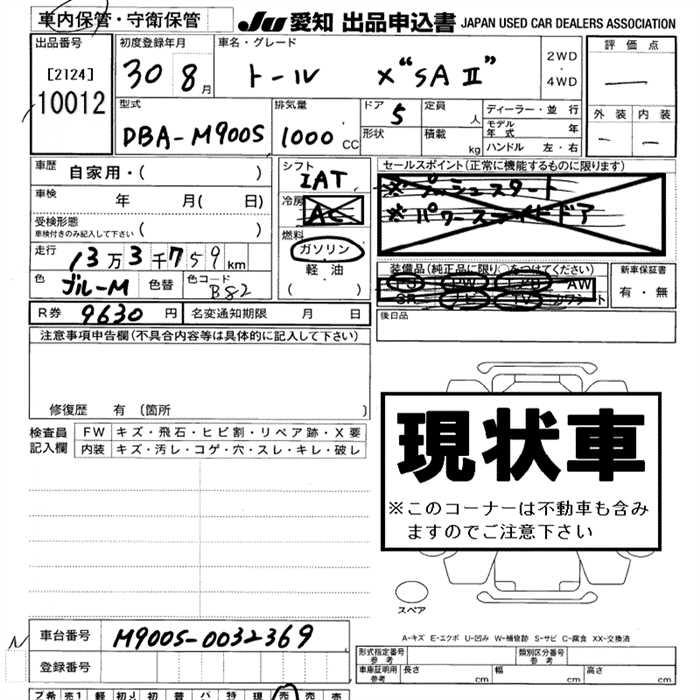 車内保管・守衛保管
JU 愛知 出品申込書 JAPAN USED CAR DEALERS ASSOCIATION
出品番号
[2124]
10012
初度登録年月
30 8月
車名・グレード
トール X“SAⅡ”
2WD
・
4WD
評価点
型式
DBA-M900S
排気量
1000 CC
ドア
5
形状
定員
人
積載
kg
ディーラー・並行
モデル年式 年
ハンドル 左・右
外装 内装
車歴 自家用・( )
車検 年 月( 日)
受検形態
車検付きのみ記入して下さい ( )
走行 13万3千759km
色 ブルーM 色替 色コード B82
シフト
IAT
冷房
AC
燃料
ガソリン
軽油
( )
セールスポイント(正常に機能するものに限ります)
※プッシュスタート
※パワースライドドア
装備品(純正品に限り○をつけてください)
PS PW エアB AW
SR ナビ TV カワシート
新車保証書
有・無
R券 9630円 名変通知期限 月 日
後日品
注意事項申告欄(不具合内容等は具体的に記入して下さい)
修復歴 有(箇所 )
検査員記入欄
FW キズ・飛石・ヒビ割・リペア跡・X要
内装 キズ・汚レ・コゲ・穴・スレ・キレ・破レ
現状車
※このコーナーは不動車も含み
ますのでご注意下さい
スペア
A-キズ E-エクボ U-凹み W-補修跡 S-サビ C-腐食 XX-交換済
車台番号 M900S-0032369
登録番号
形式指定番号
参考
類別区分番号
参考
車庫証明用
参考
長さ cm 幅 cm 高さ cm